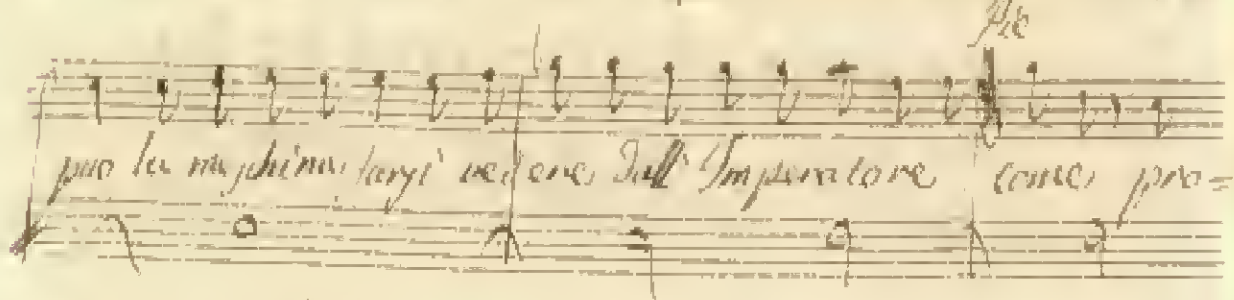 Pie
può la machina farsi vedere dall'Imperatore come pro=